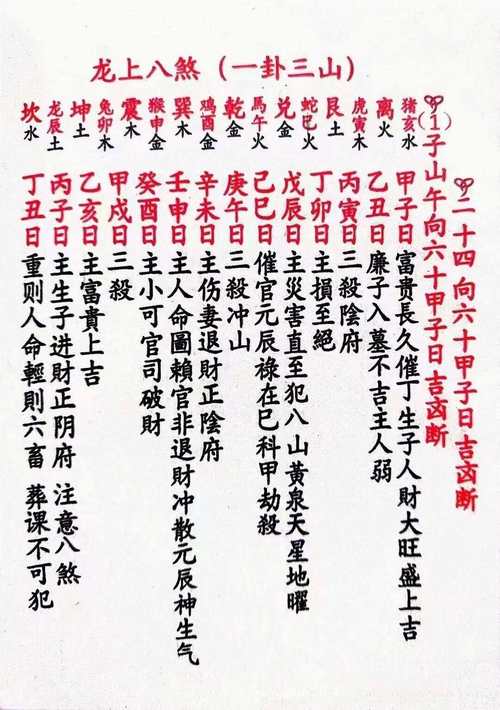 龙上八煞（一卦三山）
二十四向六十甲子日吉㐫断
(1)子山午向六十甲子日吉㐫断
猪亥水
离火
虎寅木
艮土
蛇巳火
兑金
馬午火
乾金
鸡酉金
巽木
猴申金
震木
兔卯木
坤土
龙辰土
坎水
甲子日富贵長久催丁生子人財大旺盛上吉
乙丑日廉子入墓不吉主人弱
丙寅日三殺陰府
丁卯日主損至絕
戊辰日主災害直至犯八山黃泉天星地曜
己巳日催官元辰祿在巳科甲劫殺
庚午日三殺冲山
辛未日主伤妻退財正陰府
壬申日主人命圖賴官非退財冲散元辰神生气
癸酉日主小可官司破財
甲戍日三殺
乙亥日主富貴上吉
丙子日主生子进財正阴府 注意八煞
丁丑日重则人命輕則六畜 葬课不可犯